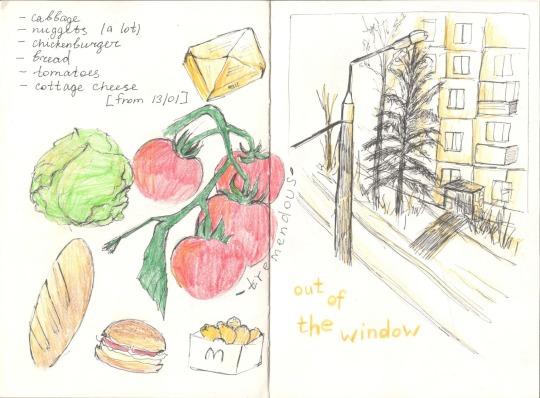 - cabbage
- nuggets (a lot)
- chickenburger
- bread
- tomatoes
- cottage cheese
[from 13/01]
- tremendous -
M
out of
the window